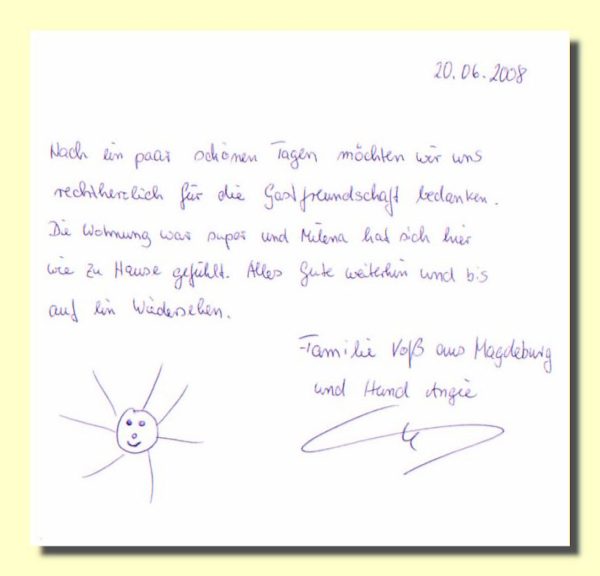 20.06.2008
Nach ein paar schönen Tagen möchten wir uns
rechtherzlich für die Gastfreundschaft bedanken.
Die Wohnung war super und Milena hat sich hier
wie zu Hause gefühlt. Alles Gute weiterhin und bis
auf ein Wiedersehen.
Familie Voß aus Magdeburg
und Hund Angie